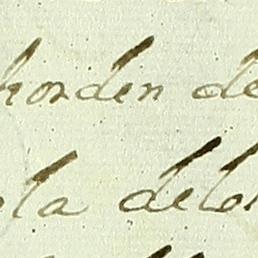 horden de
la delo